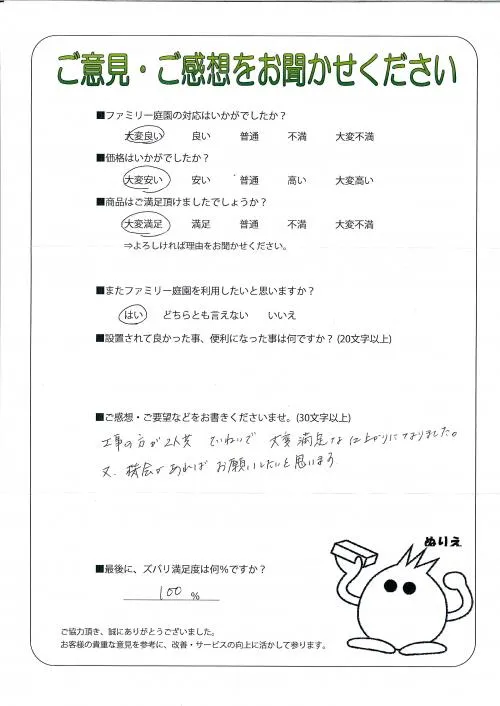 ご意見・ご感想をお聞かせください
■ファミリー庭園の対応はいかがでしたか？
大変良い 良い 普通 不満 大変不満
■価格はいかがでしたか？
大変安い 安い 普通 高い 大変高い
■商品はご満足頂けましたでしょうか？
大変満足 満足 普通 不満 大変不満
⇒よろしければ理由をお聞かせください。
■またファミリー庭園を利用したいと思いますか？
はい どちらとも言えない いいえ
■設置されて良かった事、便利になった事は何ですか？(20文字以上)
■ご感想・ご要望などをお書きくださいませ。(30文字以上)
工事の方が2人共 ていねいで 大変満足な仕上がりになりました。
又、機会があれば お願いしたいと思います
ぬりえ
■最後に、ズバリ満足度は何％ですか？
100 %
ご協力頂き、誠にありがとうございました。
お客様の貴重な意見を参考に、改善・サービスの向上に活かして参ります。